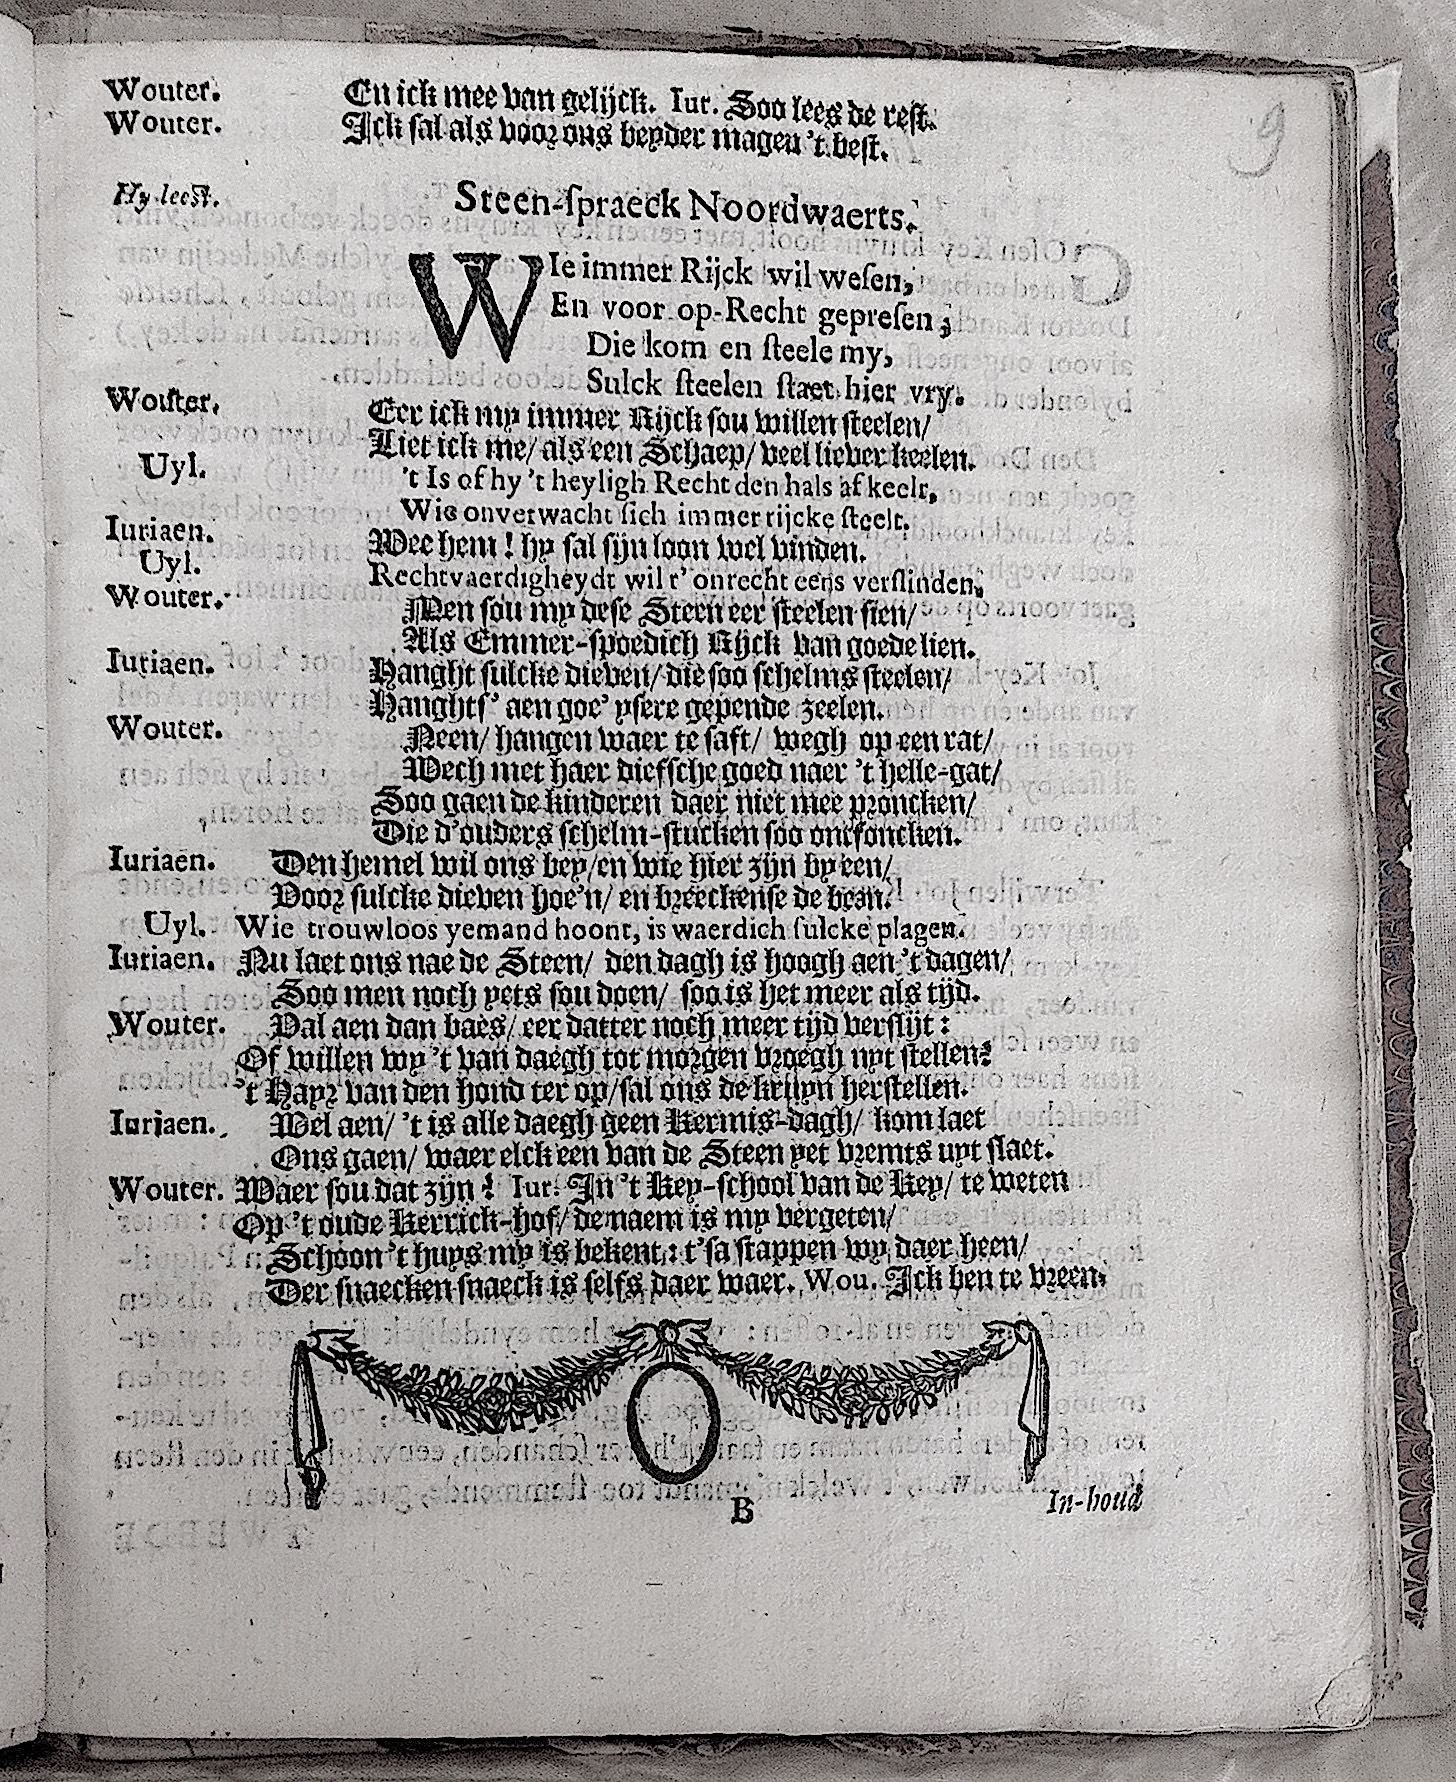 Wouter. En ick mee van gelijck. Iur. Soo lees de rest.
Wouter. Ick sal als voor ons beyder magen 't best.
Hy leest. Steen-spraeck Noordwaerts.
WIe immer Rijck wil wesen,
En voor op-Recht gepresen;
Die kom en steele my,
Sulck steelen staet hier vry.
Wouter. Eer ick my immer Rijck sou willen steelen/
Liet ick me/ als een Schaep/ veel liever keelen.
Uyl. 't Is of hy 't heyligh Recht den hals af keelt,
Wie onverwacht sich immer rijcke steelt.
Iuriaen. Wee hem! hy sal sijn loon wel vinden.
Uyl. Rechtvaerdigheydt wil t' onrecht eens verslinden,
Wouter. Men sou my dese Steen eer steelen sien/
Als Emmer-spoedich Rijck van goede lien.
Iuriaen. Hanght sulcke dieven/ die soo schelms steelen/
Hanghts' aen goe' ysere gepende zeelen.
Wouter. Neen/ hangen waer te saft/ wegh op een rat/
Wech met haer diefsche goed naer 't helle-gat/
Soo gaen de kinderen daer niet mee proncken/
Die d'ouders schelm-stucken soo ontfoncken.
Iuriaen. Den hemel wil ons bey/ en wie hier zijn by een/
Voor sulcke dieven hoe'n/ en breeckense de been.
Uyl. Wie trouwloos yemand hoont, is waerdich sulcke plagen.
Iuriaen. Nu laet ons nae de Steen/ den dagh is hoogh aen 't dagen/
Soo men noch yets sou doen/ soo is het meer als tijd.
Wouter. Val aen dan baes/ eer datter noch meer tijd verslijt:
Of willen wy 't van daegh tot morgen vroegh uyt stellen?
't Hayr van den hond ter op/ sal ons de kruyn herstellen.
Iuriaen. Wel aen/ 't is alle daegh geen Kermis-dagh/ kom laet
Ons gaen/ waer elck een van de Steen yet vremts uyt slaet.
Wouter. Waer sou dat zijn? Iur. In 't Key-school van de Key/ te weten
Op 't oude Kerrick-hof/ de naem is my vergeten/
Schoon 't huys my is bekent: t'sa stappen wy daer heen/
Der snaecken snaeck is selfs daer waer. Wou. Ick ben te vreen.
B
In-houd
9